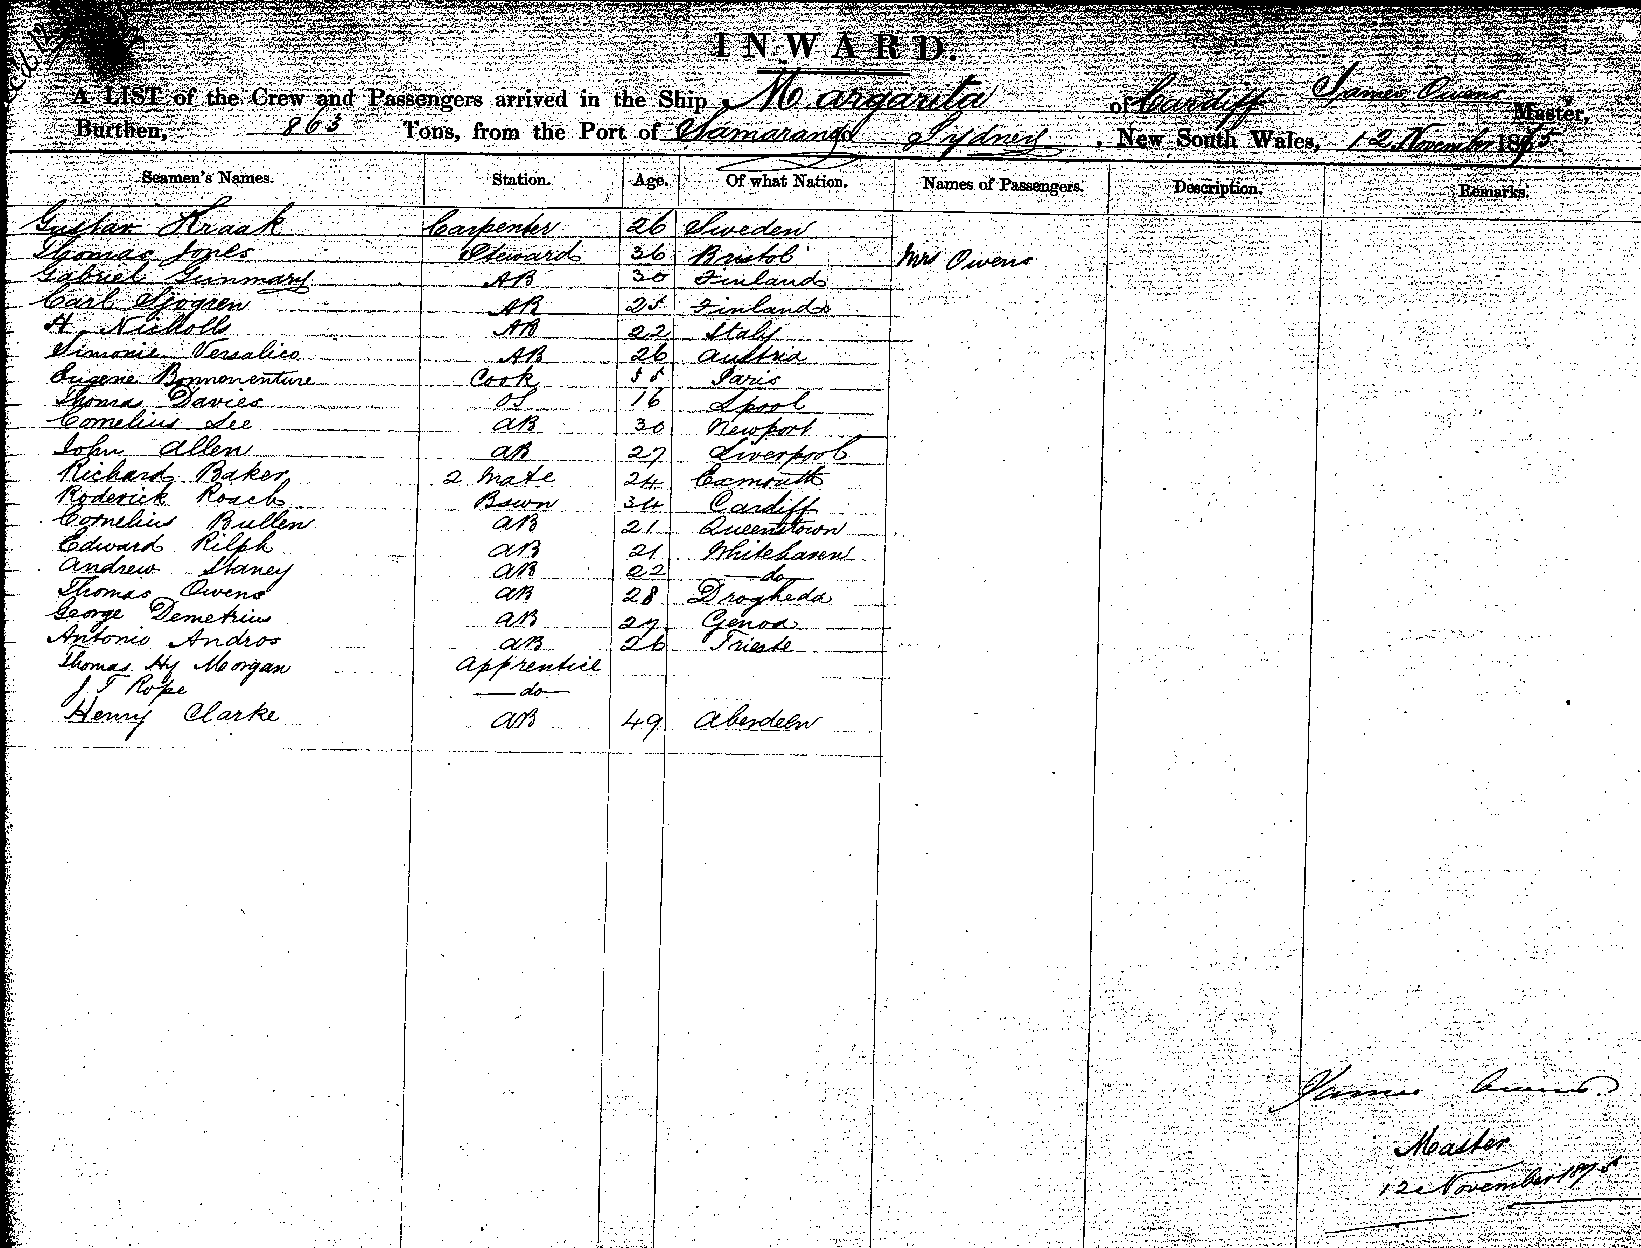 INWARD.
A LIST of the Crew and Passengers arrived in the Ship Margarita of Cardiff James Owens Master,
Burthen, 863 Tons, from the Port of Samarang Sydney, New South Wales, 12 November 1875
Seamen's Names. Station. Age. Of what Nation. Names of Passengers. Description. Remarks.
Gustav Kraak Carpenter 26 Sweden
Thomas Jones Steward 36 Bristol Mrs Owens
Gabriel Gunmary AB 30 Finland
Carl Sjogren AB 25 Finland
H. Nicholls AB 22 Italy
Simonie Versalico AB 26 Austria
Eugene Bonnonenture Cook 55 Paris
Thomas Davies OS 16 Lpool
Cornelius Lee AB 30 Newport
John Allen AB 27 Liverpool
Richard Baker 2 Mate 24 Exmouth
Roderick Roach Bswn 34 Cardiff
Cornelius Bullen AB 21 Queenstown
Edward Rilph AB 21 Whitehaven
Andrew Staney AB 22 do
Thomas Owens AB 28 Drogheda
George Demetrius AB 27 Genoa
Antonio Andros AB 26 Trieste
Thomas Hy Morgan Apprentice
J T Rope do
Henry Clarke AB 49 Aberdeen
James Owens
Master
12 November 1875